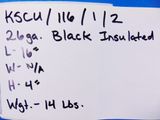 KSCU/116/1/2
26ga. Black Insulated
L- 16"
W- N/A
H- 4"
Wgt.- 14 Lbs.